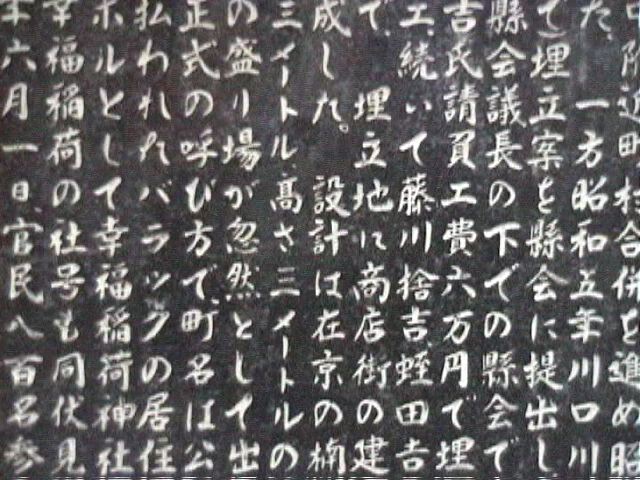 附近町村合併を進め昭
た、一方昭和五年川口川
て)埋立案を縣会に提出し
縣会議長の下での縣会で
吉氏請負工費六万円で埋
工、続いて藤川捨吉、蛭田吉
で、埋立地に商店街の建
成した。設計は在京の楠
三メートル高さ三メートルの
の盛り場が忽然として出
正式の呼び方で、町名は公
払われたバラックの居住
ボルとして幸福稲荷神社
幸福稲荷の社号も同伏見
年六月一日、官民八百名参